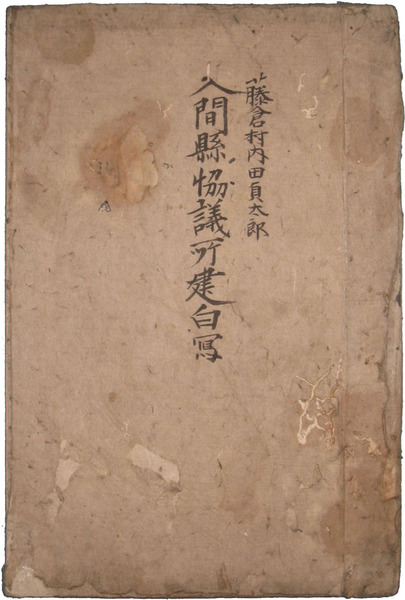 藤倉村内田員太郎
入間縣協議所建白寫